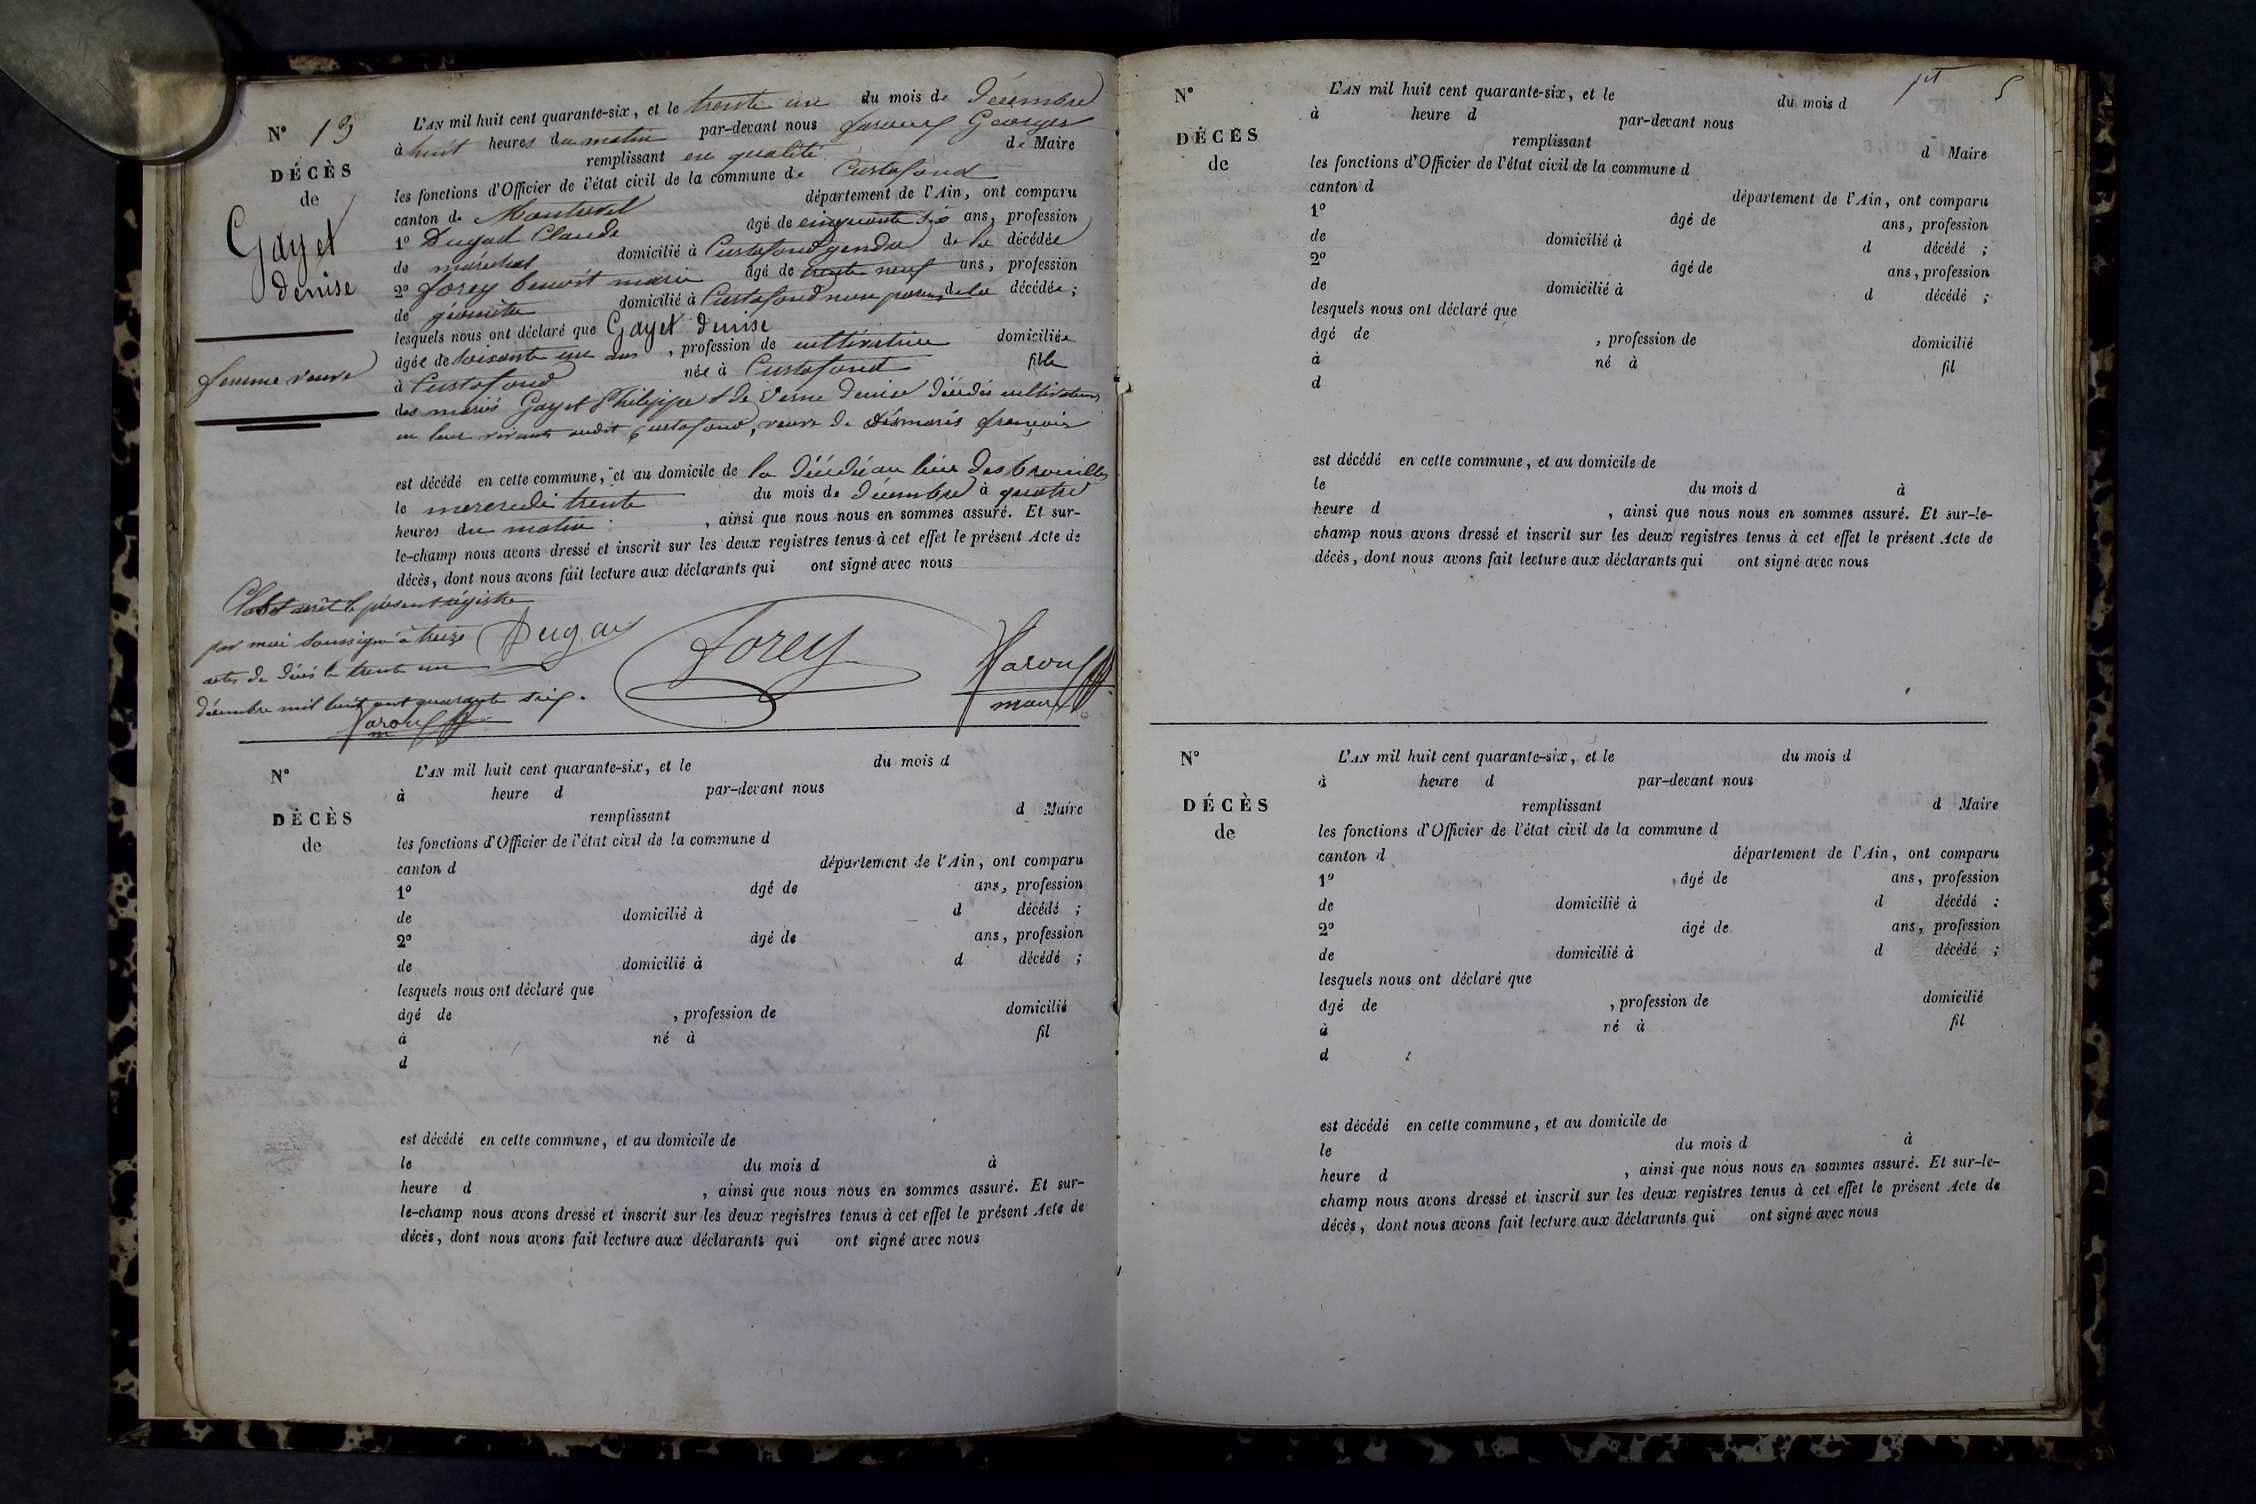 N° 13
DÉCÈS
de
Gayet
denise
femme veuve
L'AN mil huit cent quarante-six, et le trente un du mois de Décembre
à huit heures du matin par-devant nous Georges
remplissant en qualité de Maire
les fonctions d'Officier de l'état civil de la commune de Curtafond
canton de Montrevel département de l'Ain, ont comparu
1° Dugad Claude âgé de cinquante six ans, profession
de maréchal domicilié à Curtafond gendre de la décédée
2° forey benoit marie âgé de trente neuf ans, profession
de géomètre domicilié à Curtafond non parens de la décédée;
lesquels nous ont déclaré que Gayet denise
âgée de soixante un ans, profession de cultivatrice domiciliée
à Curtafond née à Curtafond fille
des mariés Gayet Philippe & de Verne Denise décédés cultivateurs
en leur vivant audit Curtafond, veuve de Désmaris françois
est décédé en cette commune, et au domicile de la décédée au lieu des brouilles
le mercredi trente du mois de Décembre à quatre
heures du matin, ainsi que nous nous en sommes assuré. Et sur-
le-champ nous avons dressé et inscrit sur les deux registres tenus à cet effet le présent Acte de
décès, dont nous avons fait lecture aux déclarants qui ont signé avec nous
Clos et arrêté le présent régistre
par moi soussigné à treize
actes de décès le trente un
décembre mil huit cent quarante six.
Dugad
Forey
maire
N°
DÉCÈS
de
L'AN mil huit cent quarante-six, et le du mois d
à heure d par-devant nous
remplissant d Maire
les fonctions d'Officier de l'état civil de la commune d
canton d département de l'Ain, ont comparu
1° âgé de ans, profession
de domicilié à d décédé ;
2° âgé de ans, profession
de domicilié à d décédé ;
lesquels nous ont déclaré que
âgé de , profession de domicilié
à né à fil
d
est décédé en cette commune, et au domicile de
le du mois d à
heure d , ainsi que nous nous en sommes assuré. Et sur-
le-champ nous avons dressé et inscrit sur les deux registres tenus à cet effet le présent Acte de
décès, dont nous avons fait lecture aux déclarants qui ont signé avec nous
5
N°
DÉCÈS
de
L'AN mil huit cent quarante-six, et le du mois d
à heure d par-devant nous
remplissant d Maire
les fonctions d'Officier de l'état civil de la commune d
canton d département de l'Ain, ont comparu
1° âgé de ans, profession
de domicilié à d décédé ;
2° âgé de ans, profession
de domicilié à d décédé ;
lesquels nous ont déclaré que
âgé de , profession de domicilié
à né à fil
d
est décédé en cette commune, et au domicile de
le du mois d à
heure d , ainsi que nous nous en sommes assuré. Et sur-le-
champ nous avons dressé et inscrit sur les deux registres tenus à cet effet le présent Acte de
décès, dont nous avons fait lecture aux déclarants qui ont signé avec nous
N°
DÉCÈS
de
L'AN mil huit cent quarante-six, et le du mois d
à heure d par-devant nous
remplissant d Maire
les fonctions d'Officier de l'état civil de la commune d
canton d département de l'Ain, ont comparu
1° âgé de ans, profession
de domicilié à d décédé :
2° âgé de ans, profession
de domicilié à d décédé ;
lesquels nous ont déclaré que
âgé de , profession de domicilié
à né à fil
d
est décédé en cette commune, et au domicile de
le du mois d à
heure d , ainsi que nous nous en sommes assuré. Et sur-le-
champ nous avons dressé et inscrit sur les deux registres tenus à cet effet le présent Acte de
décès, dont nous avons fait lecture aux déclarants qui ont signé avec nous